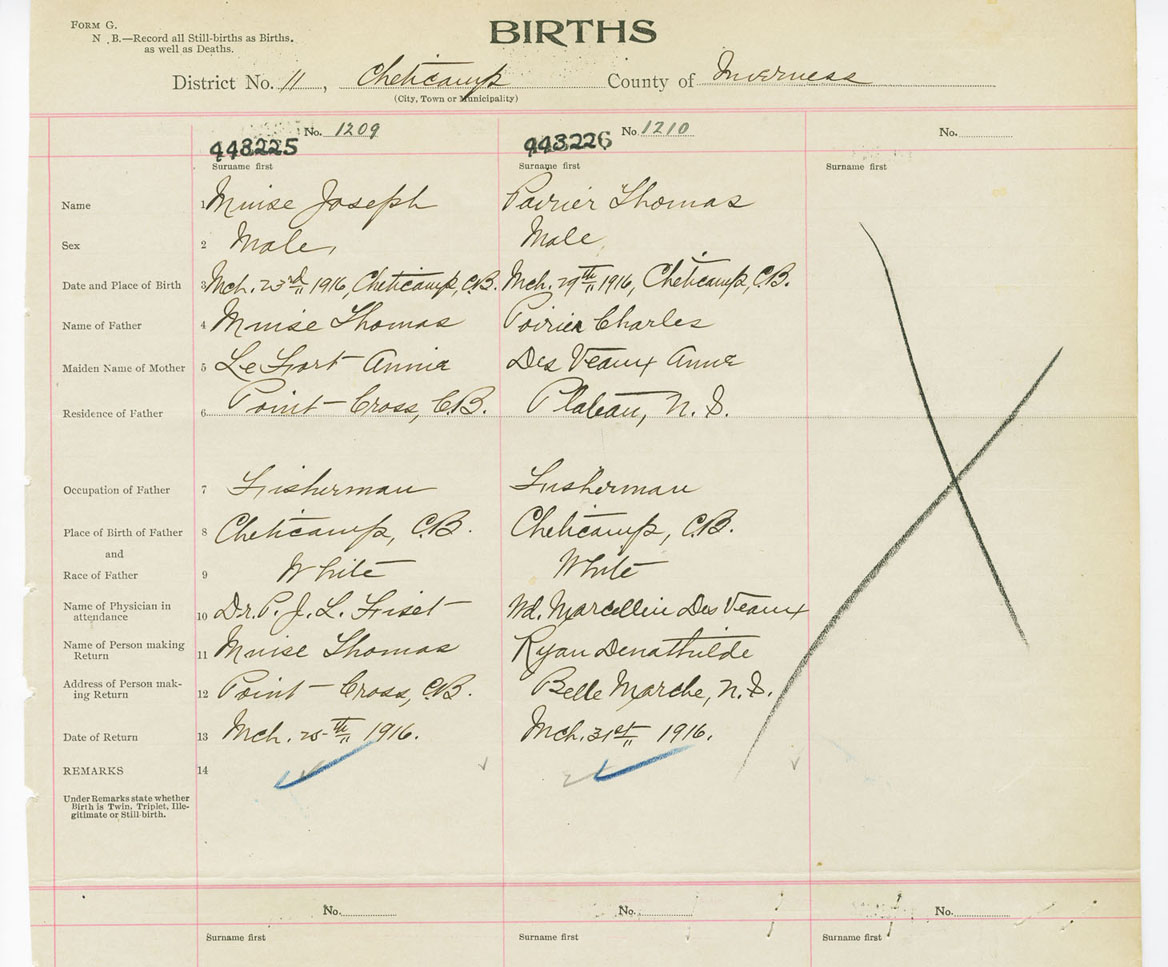 FORM G.
N.B.—Record all Still-births as Births.
as well as Deaths.
BIRTHS
District No. 11, Cheticamp County of Inverness
(City, Town or Municipality)
No. 1209 No 1210 No.
448225 448226
Surname first Surname first Surname first
Name 1 Muise Joseph Poirier Thomas
Sex 2 Male, Male
Date and Place of Birth 3 Mch. 23rd 1916, Cheticamp, C.B. Mch. 29th 1916, Cheticamp, C.B.
Name of Father 4 Muise Thomas Poirier Charles
Maiden Name of Mother 5 Le Fort Annie Des Veaux Anne
Residence of Father 6 Point-Cross, C.B. Plateau, N.S.
Occupation of Father 7 Fisherman Fisherman
Place of Birth of Father 8 Cheticamp, C.B. Cheticamp, C.B.
and
Race of Father 9 White White
Name of Physician in
attendance 10 Dr. P. J. L. Fiset Wd. Marcellin Des Veaux
Name of Person making
Return 11 Muise Thomas Ryan Denathilde
Address of Person mak-
ing Return 12 Point-Cross, C.B. Belle Marche, N.S.
Date of Return 13 Mch. 25th 1916. Mch. 31st 1916.
REMARKS 14
Under Remarks state whether
Birth is Twin, Triplet, Ille-
gitimate or Still-birth.
No. No. No.
Surname first Surname first Surname first